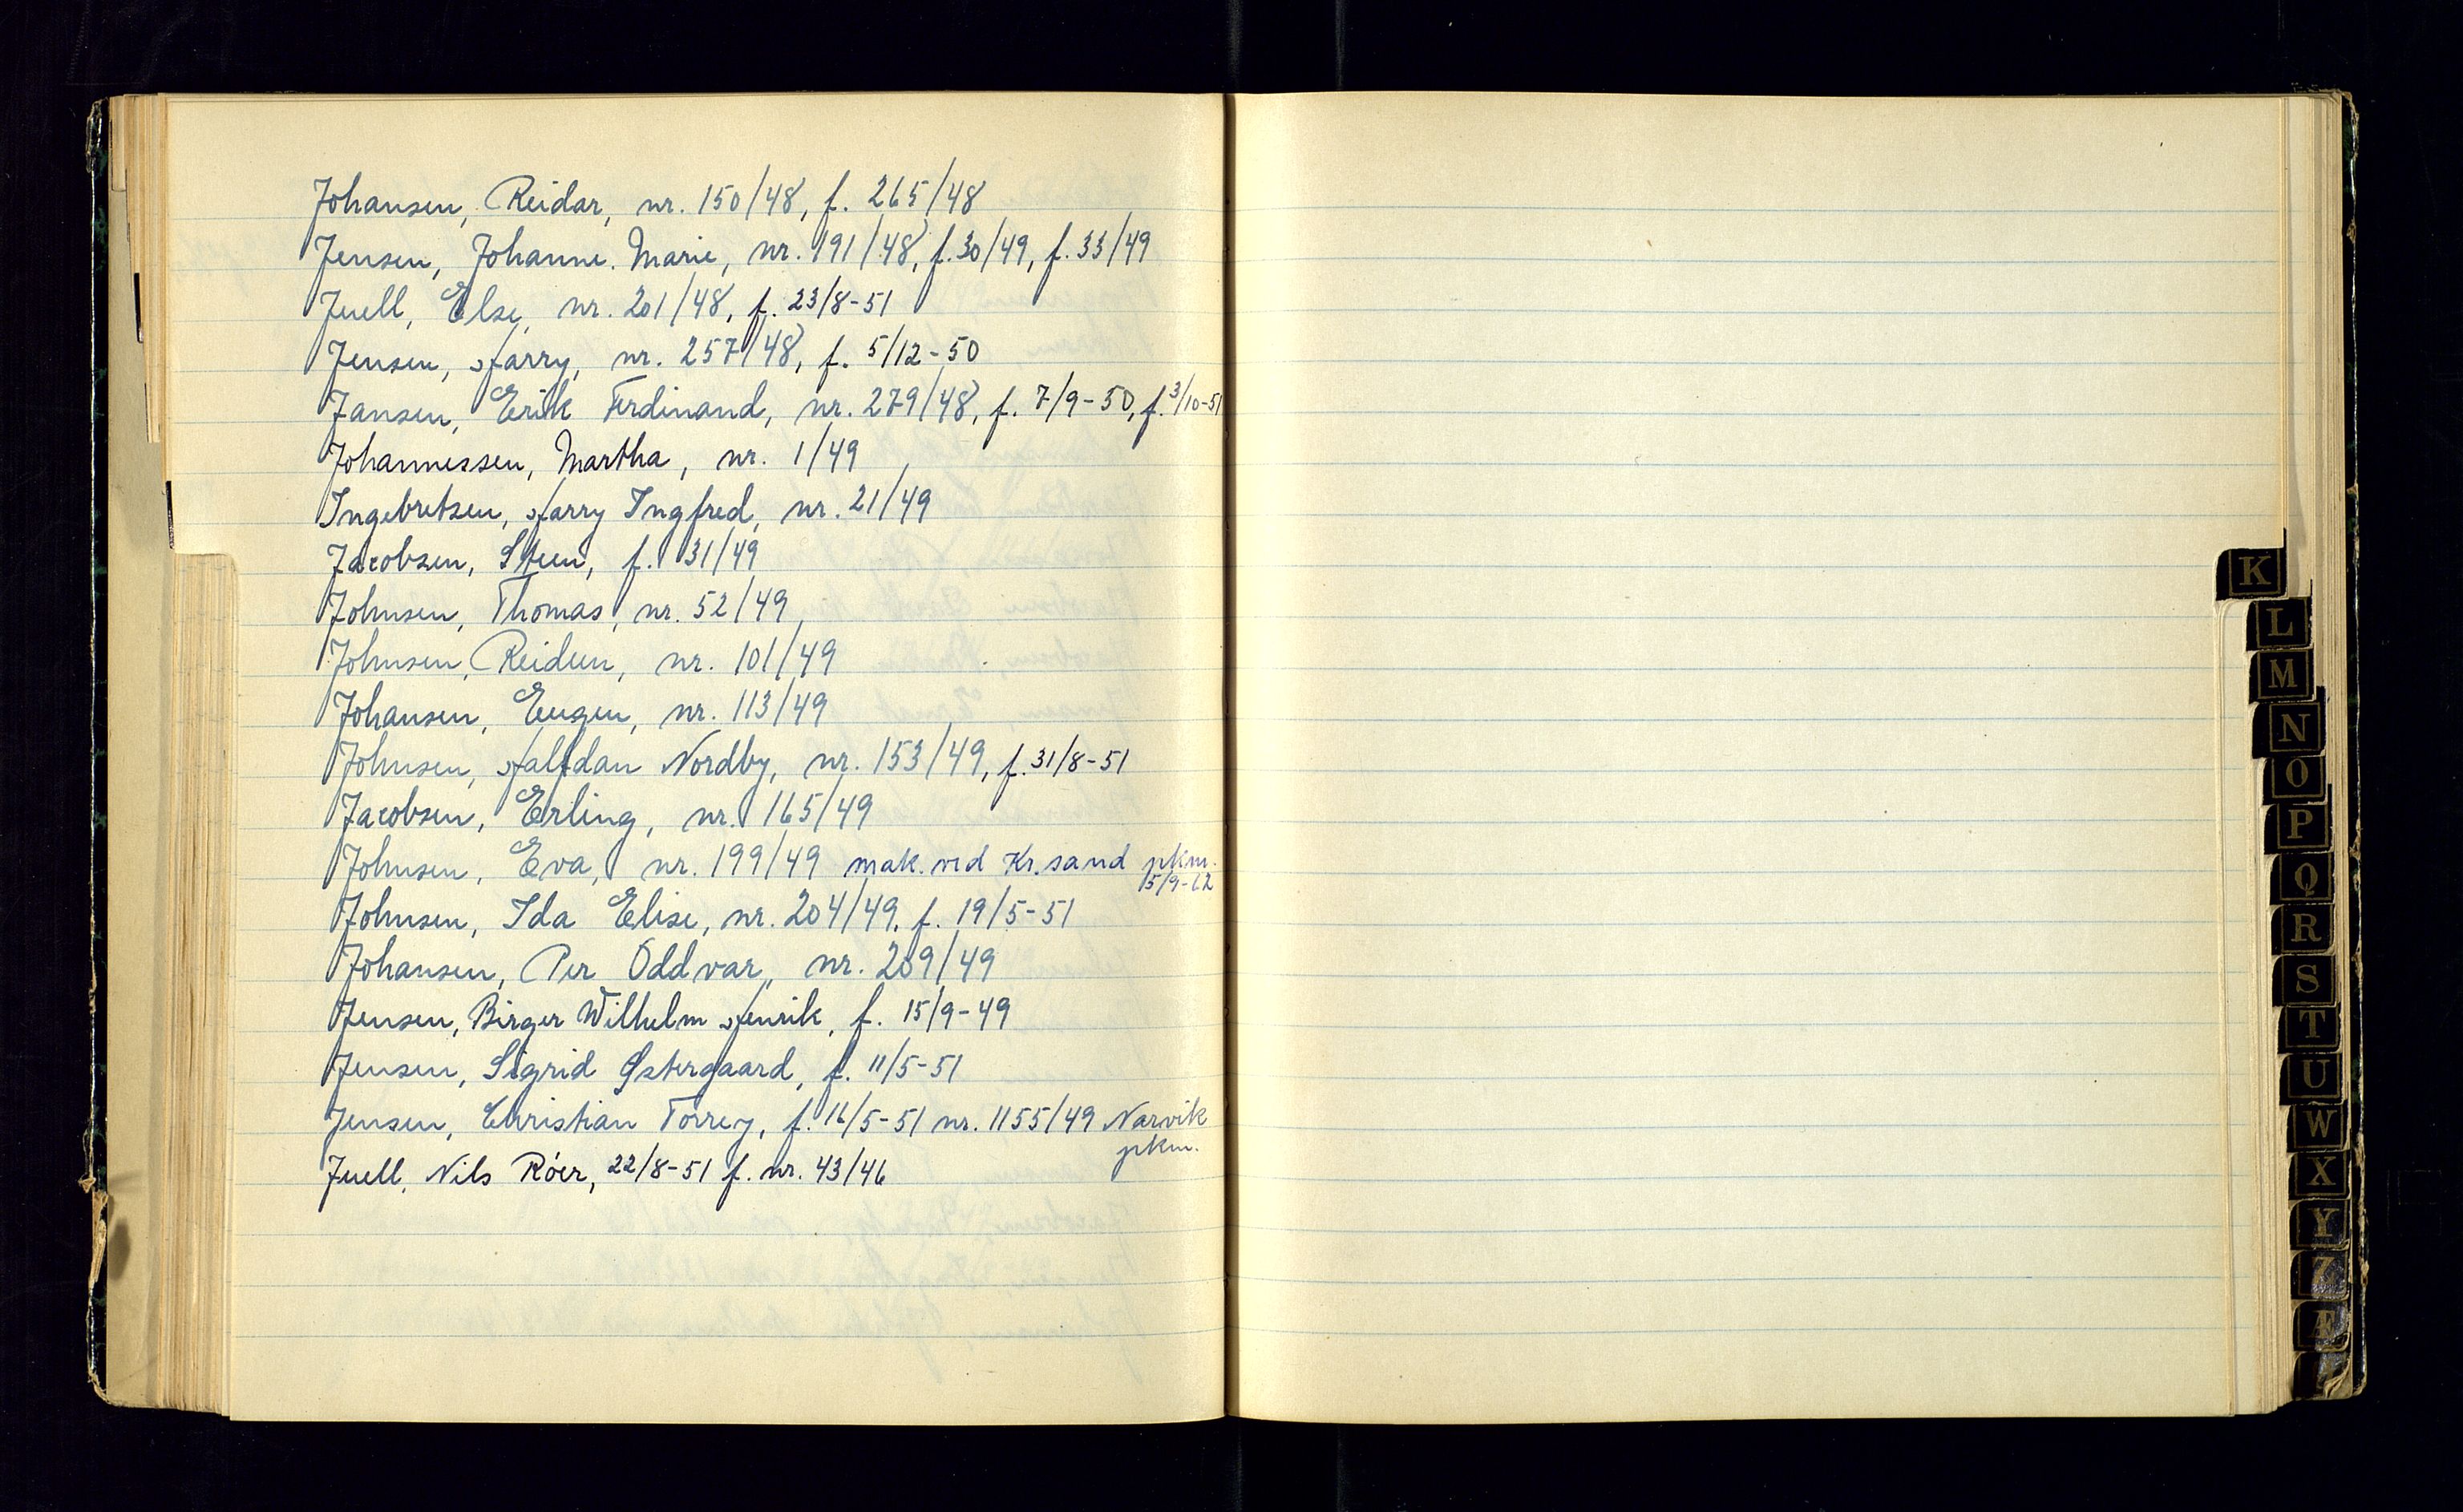 Johansen, Reidar, nr. 150/48, f. 265/48
Jensen, Johanne. Marie, nr. 191/48, f. 30/49, f. 33/49
Juell, Else, nr. 201/48, f. 23/8-51
Jensen, Harry, nr. 257/48, f. 5/12-50
Jansen, Erik Ferdinand, nr. 279/48, f. 7/9-50, f. 3/10-51
Johannessen, Martha, nr. 1/49
Ingebretsen, Harry Ingfred, nr. 21/49
Jacobsen, Steen, f. 31/49
Johnsen, Thomas, nr. 52/49
Johnsen, Reidun, nr. 101/49
Johansen, Eugen, nr. 113/49
Johnsen, Halfdan Nordby, nr. 153/49, f. 31/8-51
Jacobsen, Erling, nr. 165/49
Johnsen, Eva, nr. 199/49 mak. ved Kr.sand pkm.
15/9-62
Johnsen, Ida Elise, nr. 204/49, f. 19/5-51
Johansen, Per Oddvar, nr. 209/49
Jensen, Birger Wilhelm Henrik, f. 15/9-49
Jensen, Sigrid Østergaard, f. 11/5-51
Jensen, Christian Torrey, f. 16/5-51 nr. 1155/49 Narvik
pkm.
Juell, Nils Róer, 22/8-51 f. nr. 43/46
K
L
M
N
O
P
Q
R
S
T
U
W
X
Y
Z
Æ